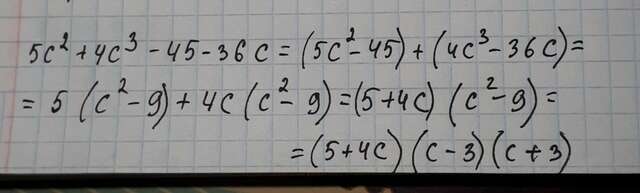 5c² + 4c³ - 45 - 36c = (5c² - 45) + (4c³ - 36c) =
= 5 (c² - 9) + 4c (c² - 9) = (5 + 4c) (c² - 9) =
= (5 + 4c) (c - 3) (c + 3)